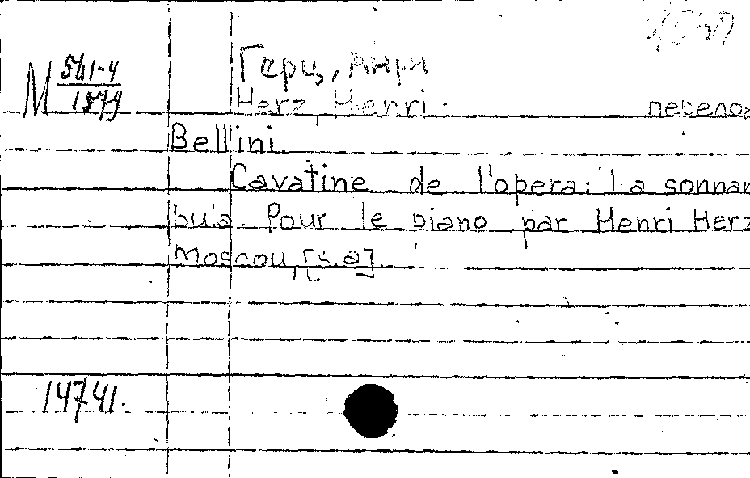 Герц, Анри
М 561-4/1899
Herz, Henri. перелож
Bellini.
Cavatine de l'opera: La sonnam
bula Pour le piano par Henri Herz
Moscou, [s.a].
14741.